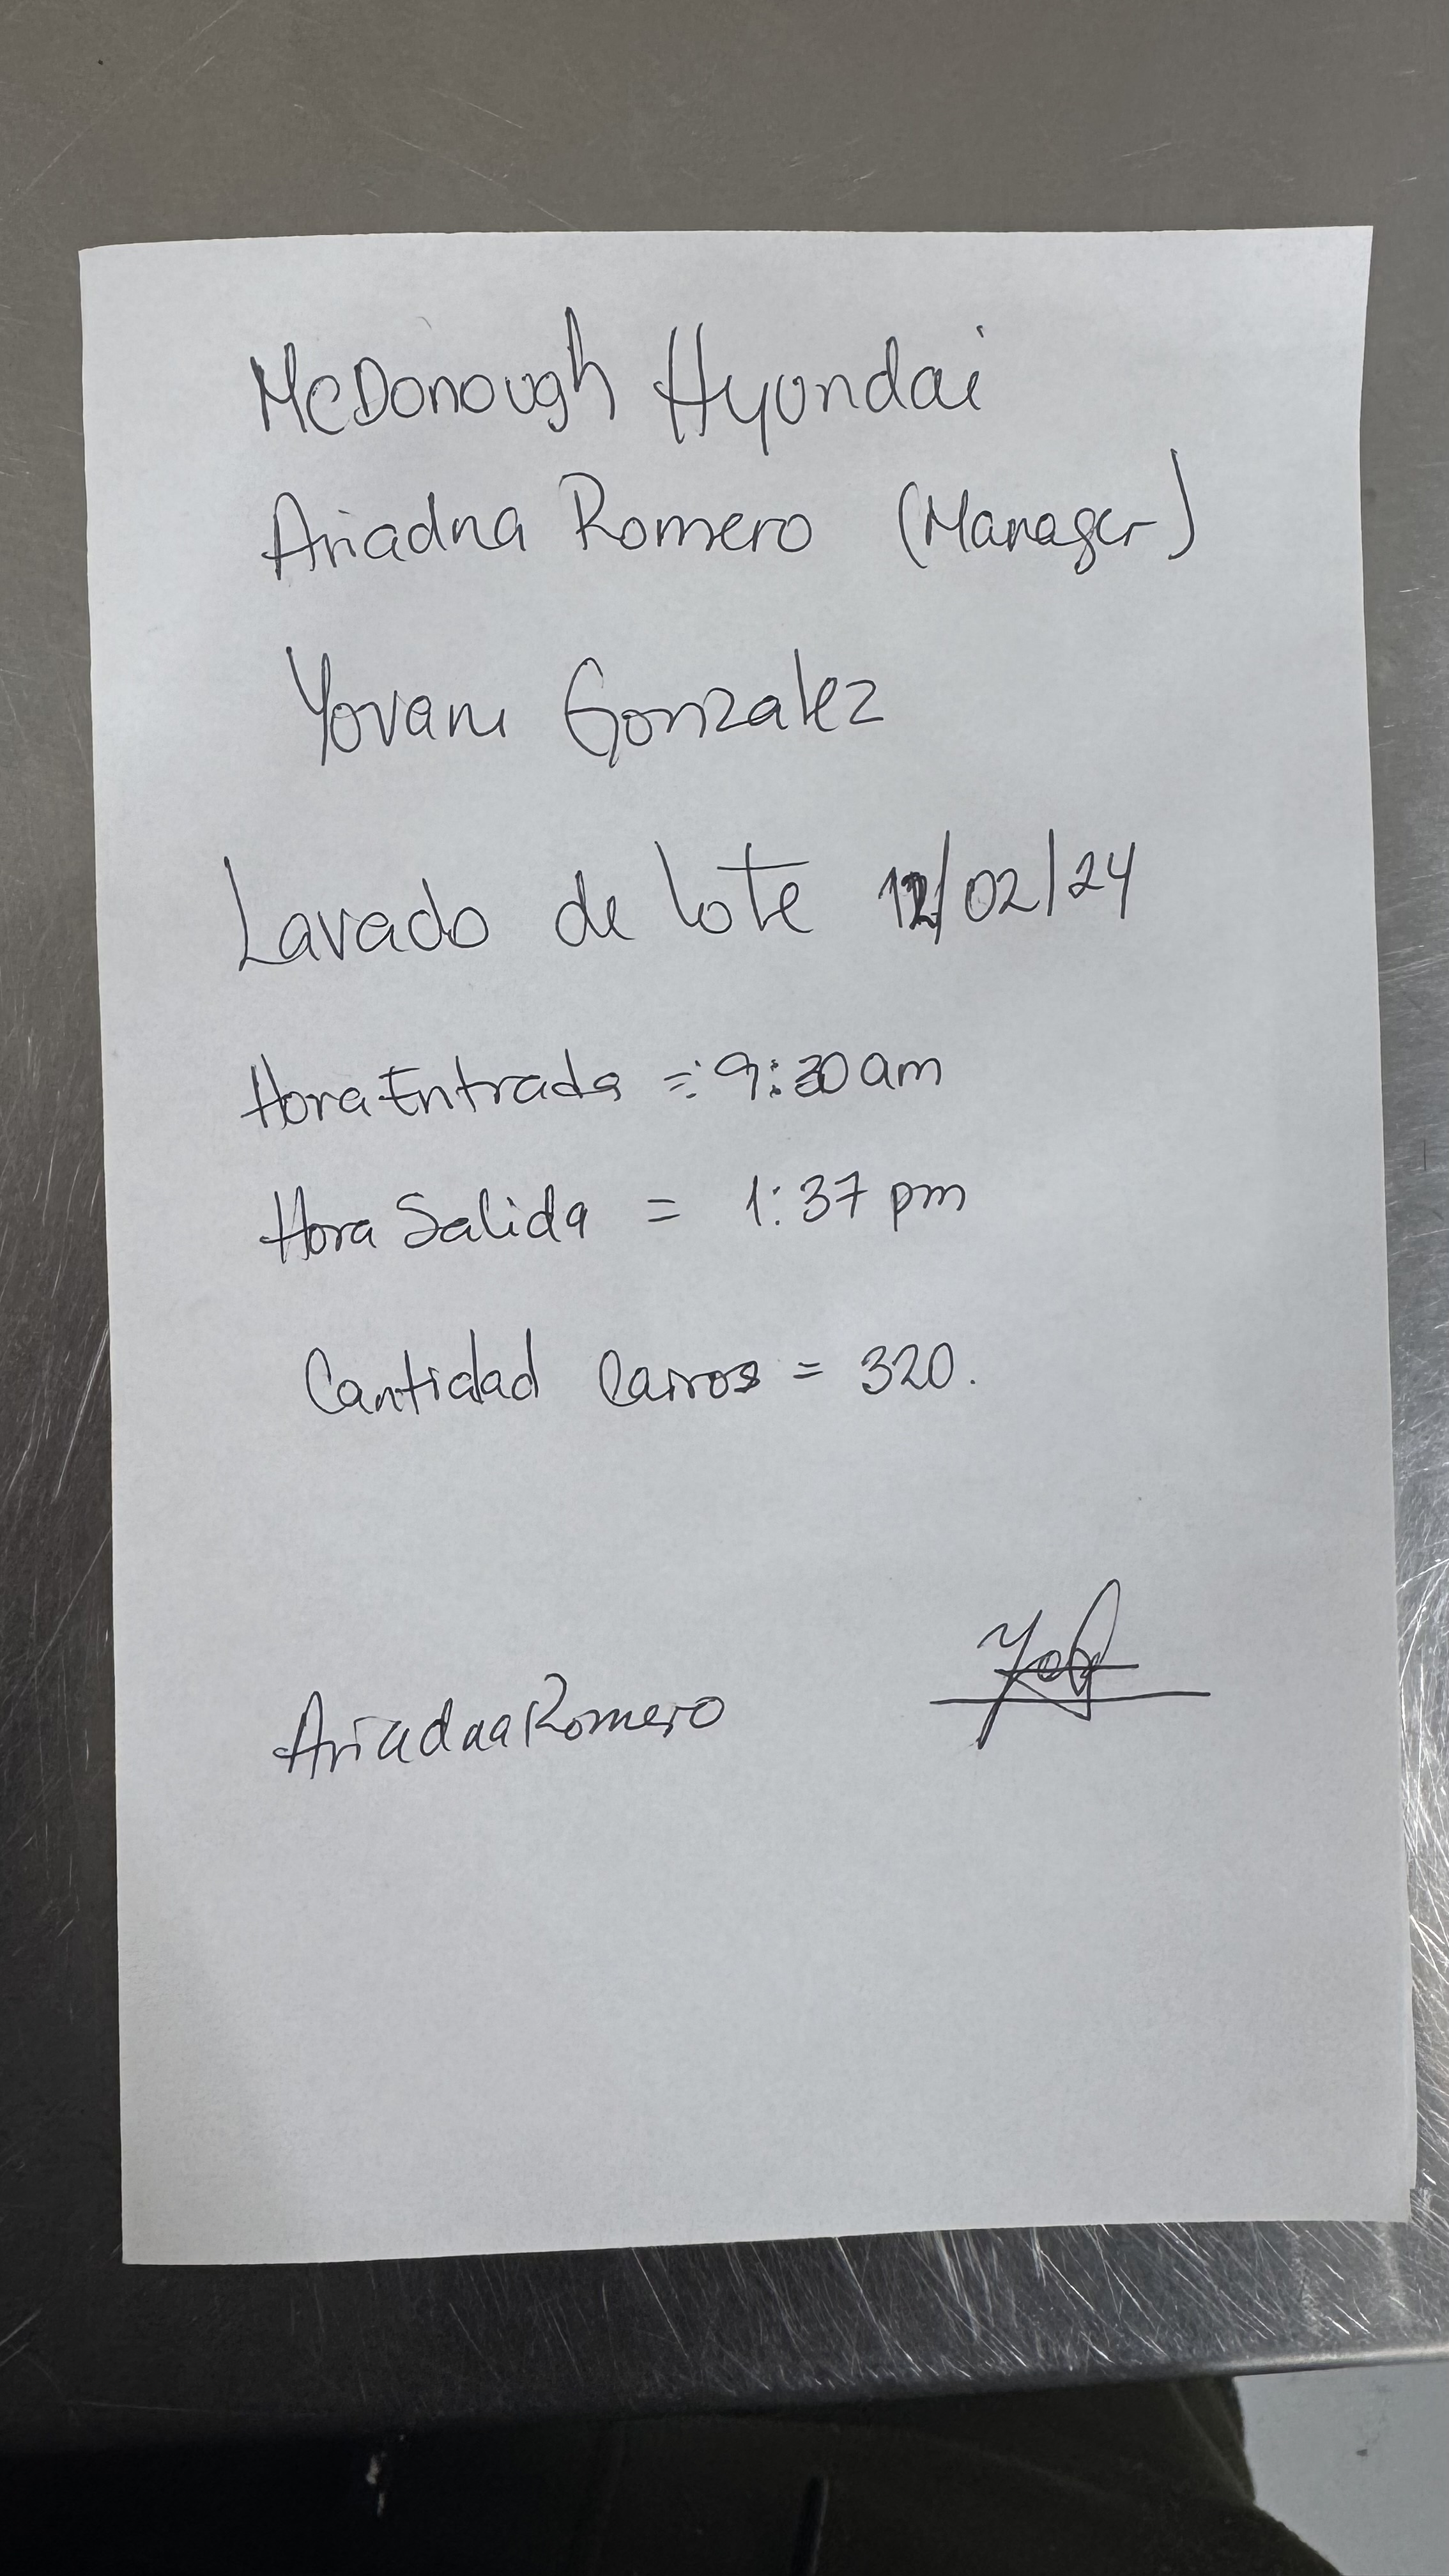 McDonough Hyundai
Ariadna Romero (Manager)
Yovani Gonzalez
Lavado de lote 12/02/24
Hora Entrada = 9:30 am
Hora Salida = 1:37 pm
Cantidad Carros = 320.
Ariadna Romero